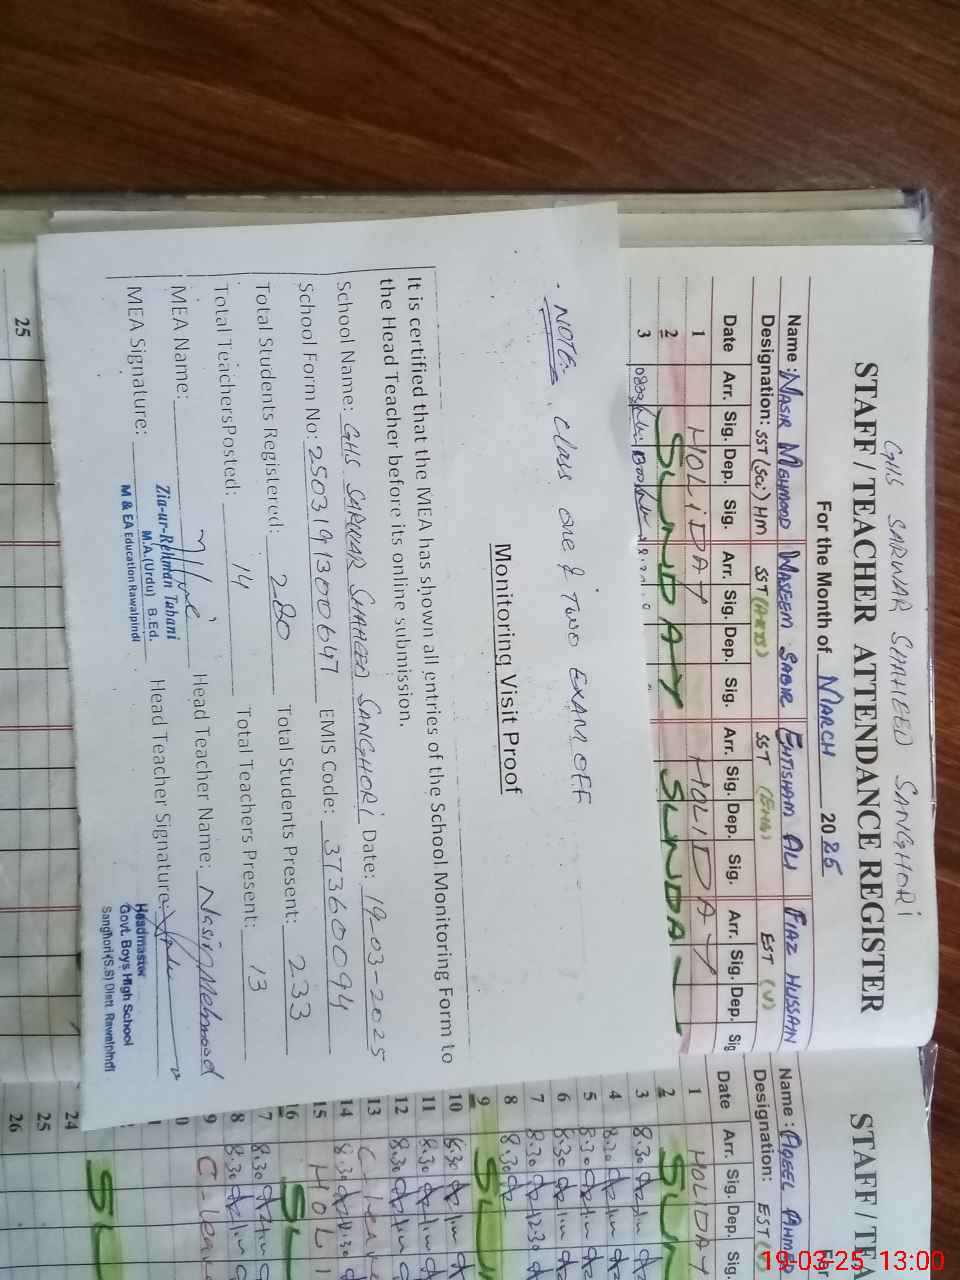 GHS SARWAR SHAHEED SANGHORI
STAFF / TEACHER ATTENDANCE REGISTER
For the Month of MARCH 2025
Name : NASIR MEHMOOD WASEEM SABIR EHTISHAM ALI FIAZ HUSSAIN
Designation: SST (Sci) HM SST SST EST (V)
Date Arr. Sig. Dep. Sig. Arr. Sig. Dep. Sig. Arr. Sig. Dep. Sig. Arr. Sig. Dep. Sig
1 HOLIDAY HOLIDAY
2 SUNDAY SUNDAY
3
NOTE: class one & Two EXAM OFF
Monitoring Visit Proof
It is certified that the MEA has shown all entries of the School Monitoring Form to
the Head Teacher before its online submission.
School Name: GHS SARWAR SHAHEED SANGHORI Date: 19-03-2025
School Form No: 2503191300647 EMIS Code: 37360094
Total Students Registered: 280 Total Students Present: 233
Total TeachersPosted: 14 Total Teachers Present: 13
MEA Name: Head Teacher Name: Nasir Mehmood
MEA Signature: Head Teacher Signature:
Zia-ur-Rehman Tabani
M.A.(Urdu) B.Ed.
M & EA Education Rawalpindi
Headmaster
Govt. Boys High School
Sanghori (S.S) Distt. Rawalpindi
25
STAFF / TEA
Name : AQEEL AHMED
Designation: EST
Date Arr. Sig. Dep. Sig.
1 HOLIDAY
2 SUN
3 8.30
4 8.30
5 8.30
6 8.30
7 8.30 12.30
8 8.30
9 SU
10 8.30
11 8.30
12 8.30
13 C-leave
14 8.30 12.30
15 HOLI
16 SU
7 8.30
8 8.30
9 C-leav
0
1
SU
24
25
26
19-03-25 13:00